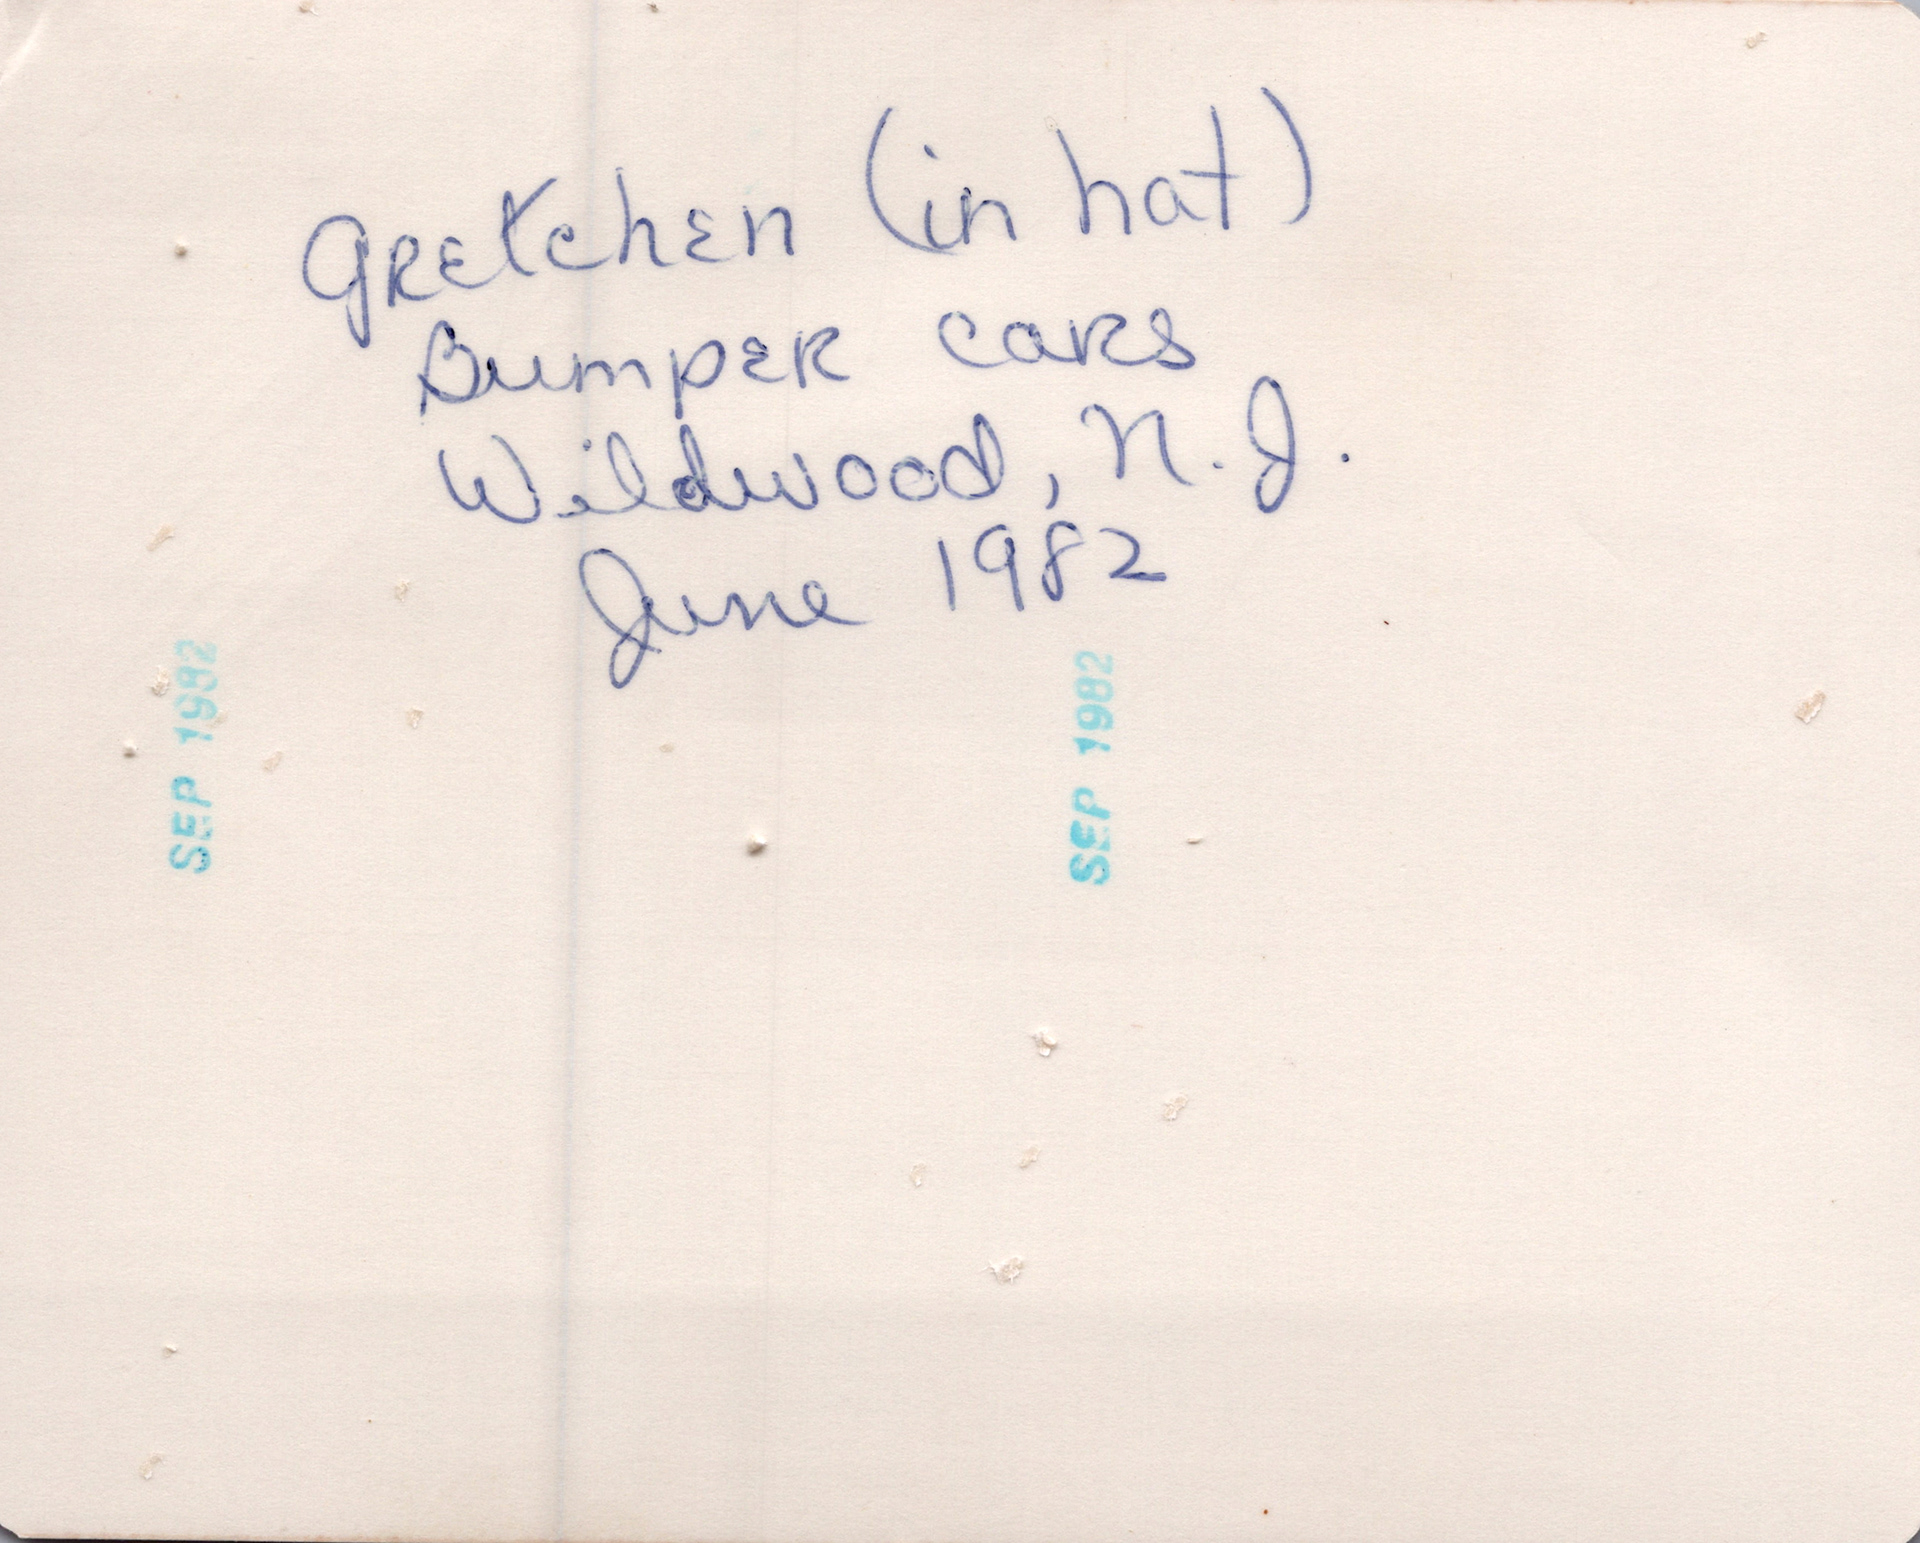 Gretchen (in hat)
Bumper cars
Wildwood, N.J.
June 1982
SEP 1982
SEP 1982